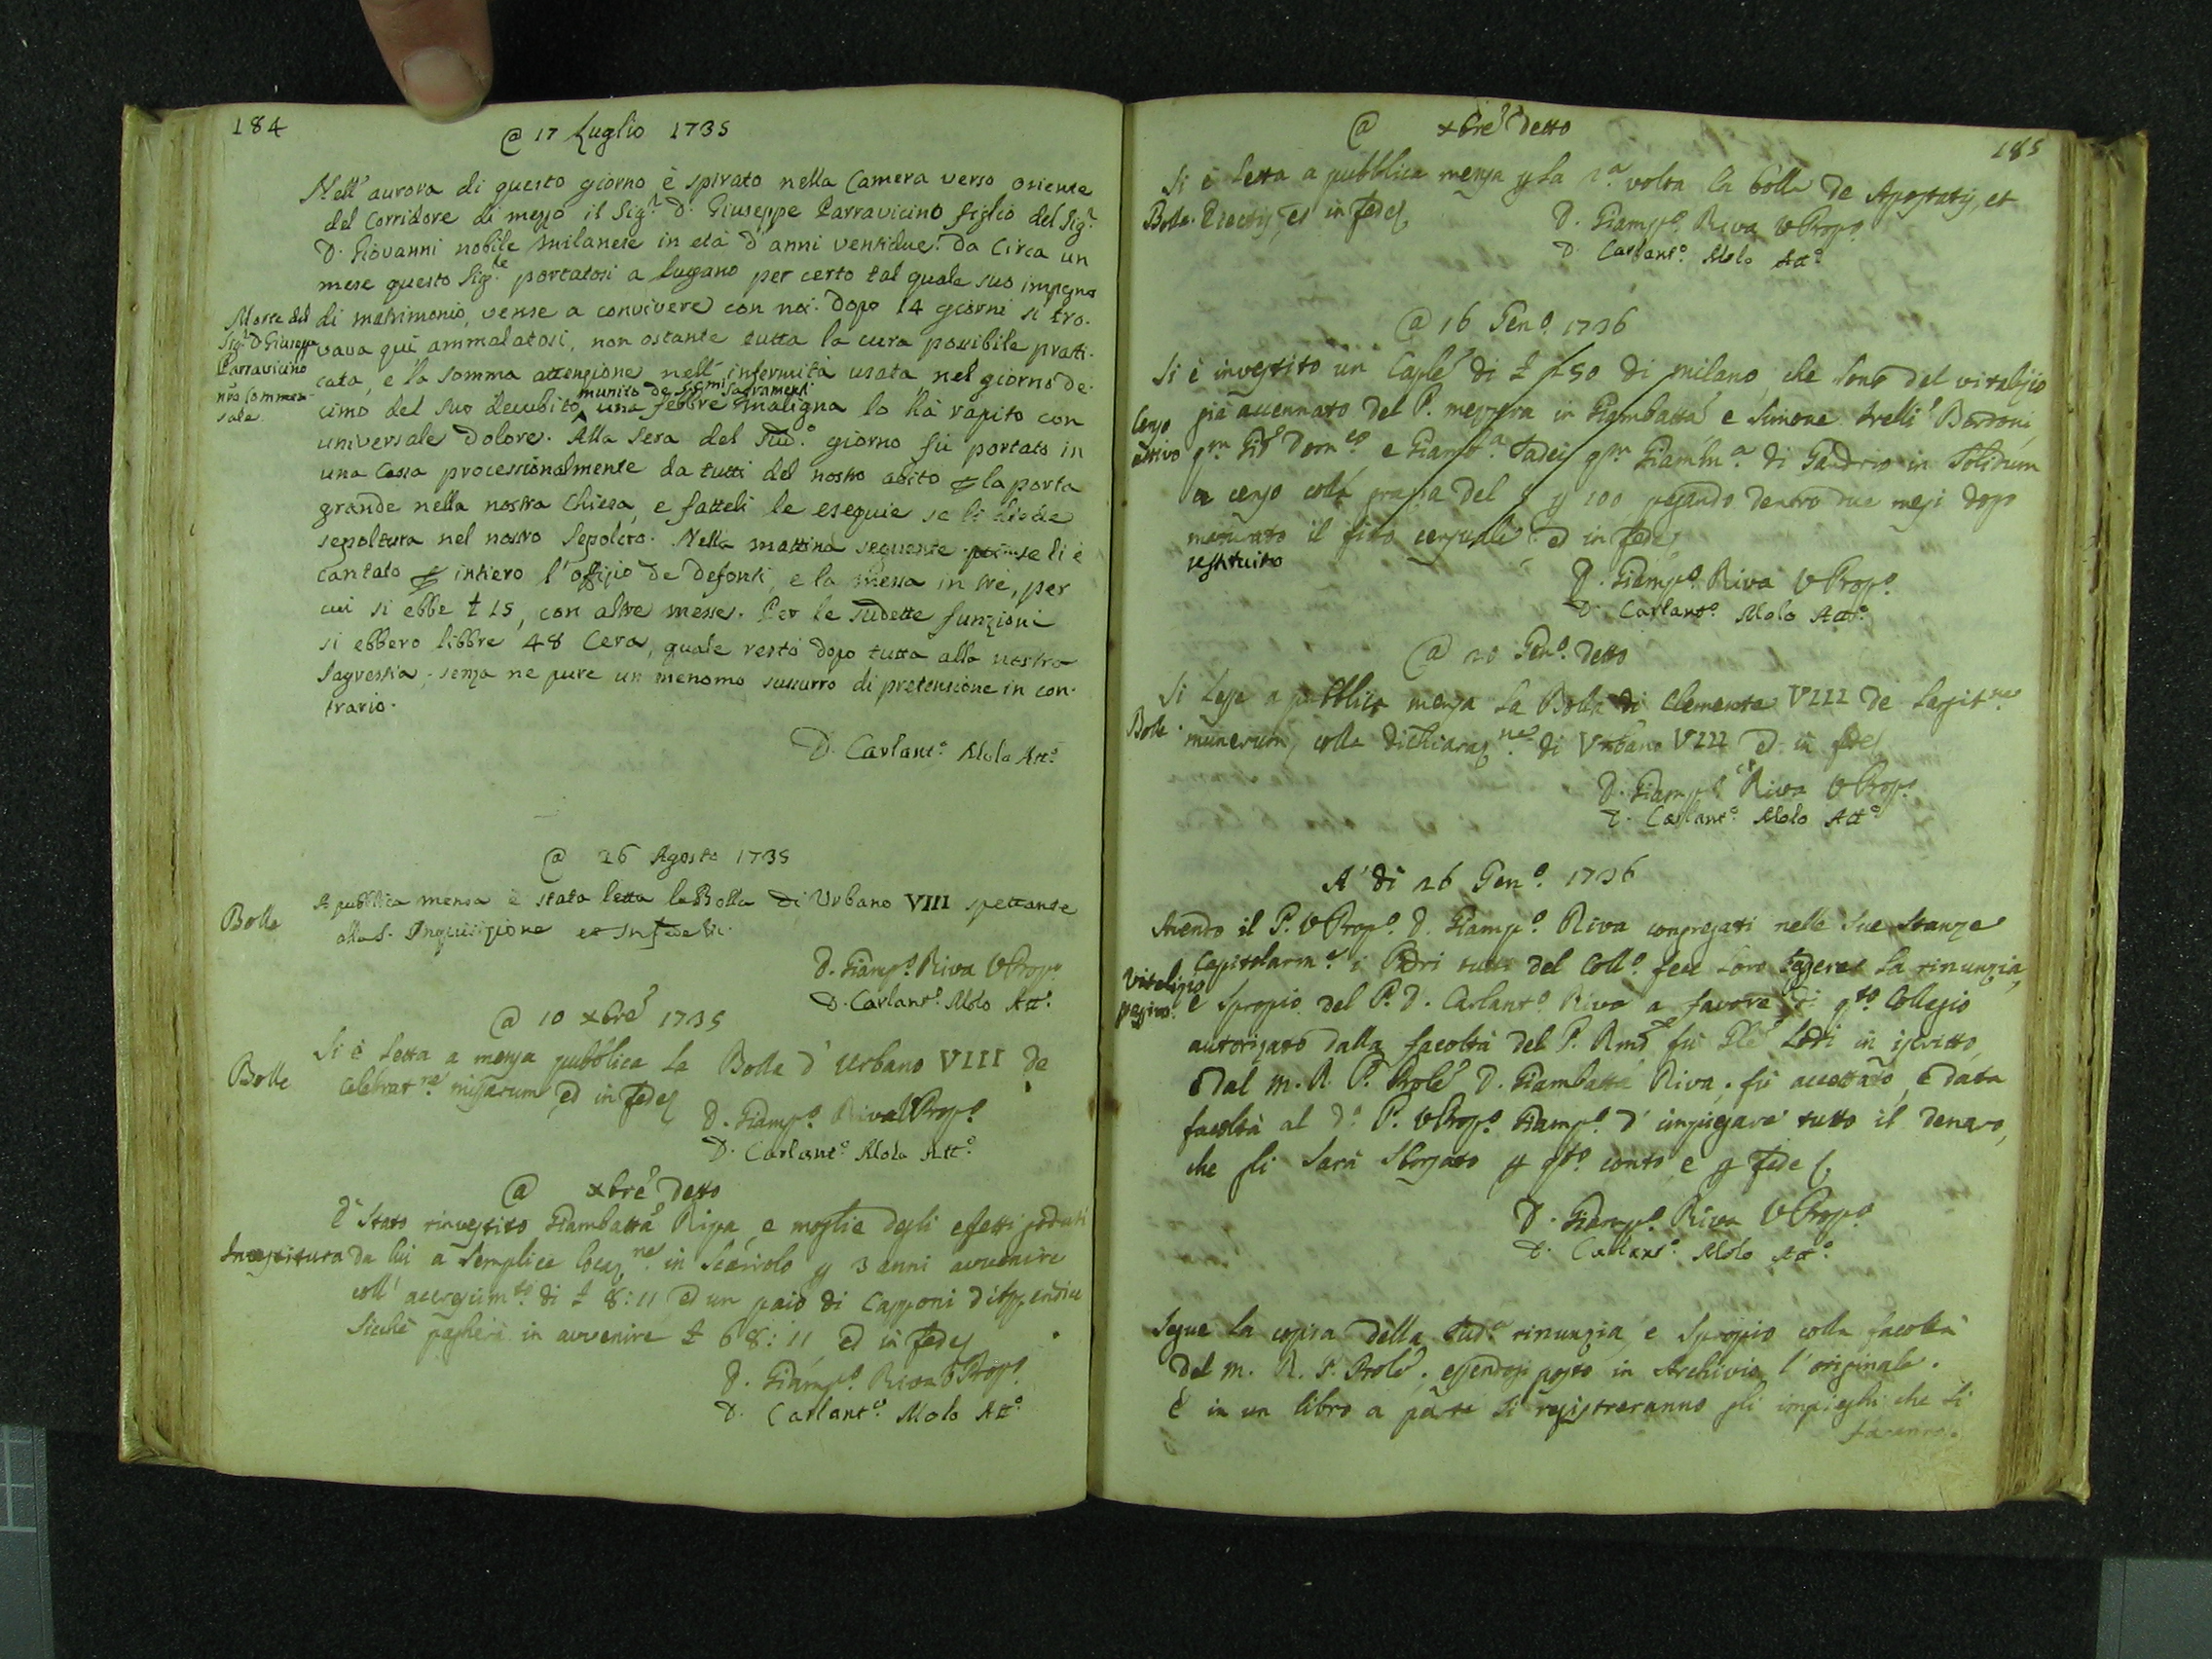 184
@ 17 Luglio 1735
Nell' aurora di questo giorno è spirato nella Camera verso oriente
del Corridore di mezzo il Sig.r D. Giuseppe Parravicino figlio del Sig.r
D. Giovanni nobile milanese in età d'anni ventidue. Da Circa un
mese questo Sig.re portatosi a Lugano per certo tal quale suo impegno
Morte del Sig.r D Giuseppe Parravicino nr̃o Commensale.
di matrimonio, venne a convivere con noi. dopo 14 giorni si tro-
vava qui ammalatosi, non ostante tutta la cura possibile pratti-
cata, e la somma attenzione nell' infermità usata nel giorno de-
cimo del suo decubito munito de SS.mi Sacramenti una febbre maligna lo hà rapito con
universale dolore. Alla sera del sud.o giorno fù portato in
una Cassa processionalmente da tutti del nostro abito p la porta
grande nella nostra Chiesa, e fatteli le esequie se li diede
sepoltura nel nostro Sepolcro. Nella mattina seguente se li è
cantato p intiero l'offizio de defonti, e la Messa in trè, per
cui si ebbe £ 15, con altre messe. Per le sudette funzioni
si ebbero libbre 48 Cera, quale restò dopo tutta alla nostra
Sagrestia, senza ne pure un menomo sussurro di pretensione in con-
trario.
D. Carlant.o Molo Att.o
@ 26 Agosto 1735
Bolle
A pubblica mensa è stata letta la Bolla di Urbano VIII spettante
alla S. Inquisizione
D. Giamp.o Riva VProp.o
D. Carlant.o Molo Att.o
@ 10 xbre 1735
Bolle
Si è letta a mensa pubblica la Bolla d' Urbano VIII de
Celebrat.ne missarum ed in fede
D. Giamp.o Riva VProp.o
D. Carlant.o Molo Att.o
@ xbre detto
Investitura
È stato rinvestito Giambatta Ripa, e moglie degli effetti goduti
da lui a semplice locaz.ne in Scairolo p 3 anni avvenire
coll' accrescim.to di £ 8:11 ed un paio di Capponi d'appendice
sicchè pagherà in avvenire £ 68:11 ed in fede
D. Giamp.o Riva VProp.o
D. Carlant.o Molo Att.o
185
@ xbre detto
Si è letta a pubblica mensa p la 2.a volta la bolla de Apostatis, et
Bolle. Eiectis, ed in fede
D. Giamp.o Riva VProp.o
D. Carlant.o Molo Att.o
@ 16 Gen.o 1736
Si è investito un Caple di £ 450 di milano, che sono del vitalizio
Censo attivo
già accennato del P. mezzera in Giambatta e Simone frelli Bordoni
qm Gio Dom.co e Giamb.a Tadei qm Giamb.a di Gandria in solidum
a censo colla grazia del 5 p 100, pagando dentro due mesi dopo
maturato il fitto censuale ed in fede
restituito
D. Giamp.o Riva VProp.o
D. Carlant.o Molo Att.o
@ 20 Gen.o detto
Bolle
Si lesse a pubblica mensa la Bolla di Clemente VIII de Largit.ne
munerum, colla dichiaraz.ne di Urbano VIII ed in fede
D. Giamp.o Riva VProp.o
D. Carlant.o Molo Att.o
A' di 26 Gen.o 1736
Avendo il P. VProp.o D. Giamp.o Riva congregati nelle sue stanze
Capitolarm.e i Padri tutti del Coll.o fece loro leggere la rinunzia,
Vitalizio passivo.
e spropio del P. D. Carlant.o Riva a favore di q.to Collegio
autorizato dalla facoltà del P. Rmo fù Gle Lodi in iscritto,
e dal M. R. P. Prole D. Giambatta Riva, fù accettato, e data
facoltà al d.o P. VProp.o Giamp.o d' impiegare tutto il denaro,
che gli sarà sborsato p q.to conto e p fede
D. Giamp.o Riva VProp.o
D. Carlant.o Molo Att.o
Segue la copia della sud.a rinunzia, e spropio colla facoltà
del M. R. P. Prole, essendosi posto in Archivio l'originale.
E in un libro a parte si registreranno gli impieghi che si
faranno.